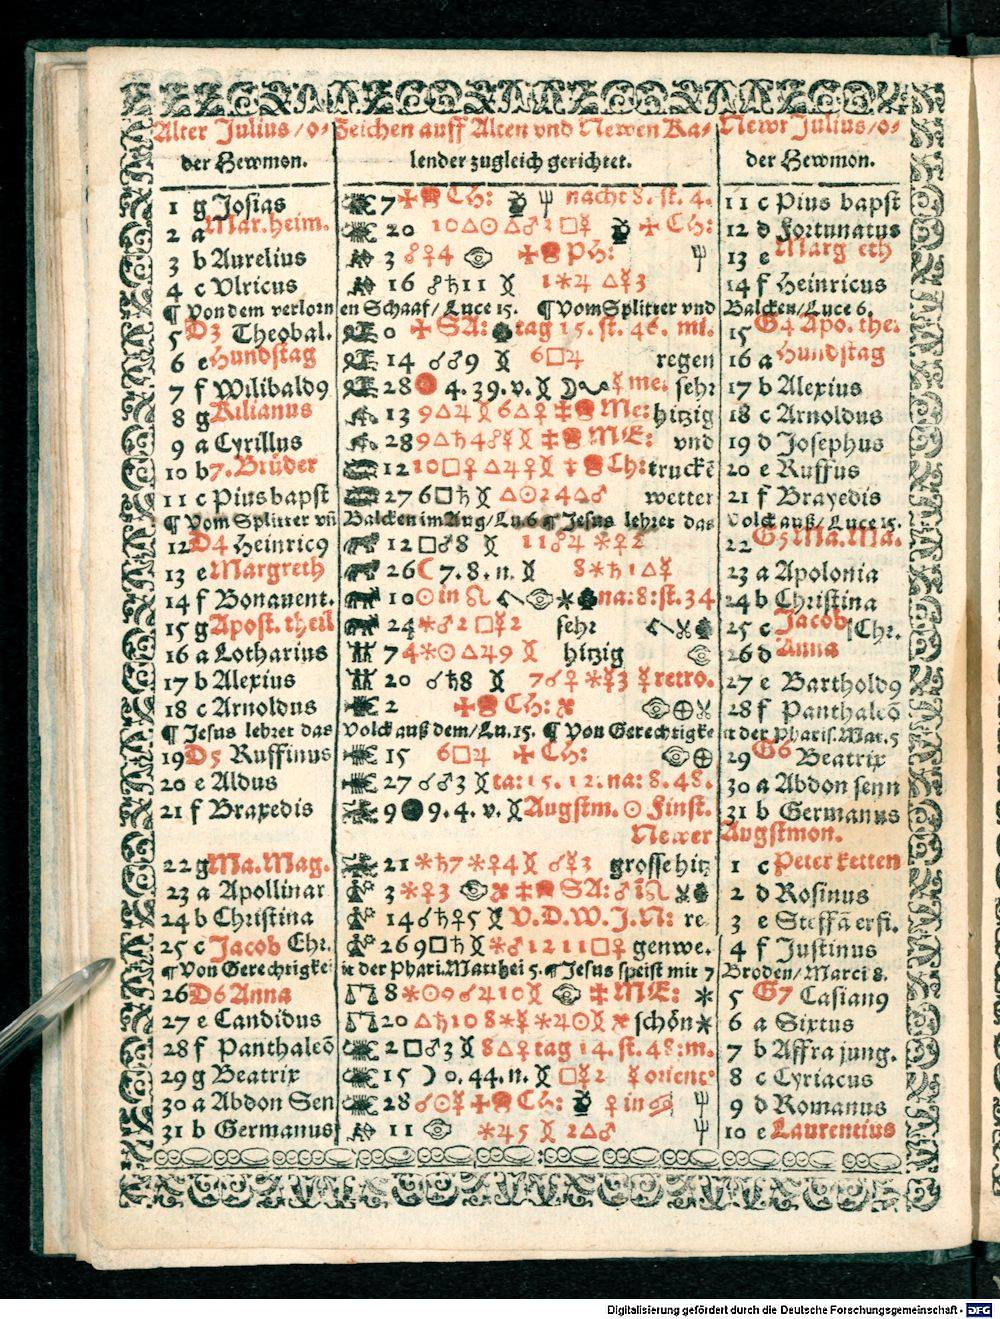 Alter Julius/o- Zeichen auff Alten vnd Newen Ka- Newr Julius/o-
der Hewmon. lender zugleich gerichtet. der Hewmon.
1 g Josias 7 ☩ Ch: nacht 8. st. 4. 11 c Pius bapst
2 a Mar. heim. 20 10 △ ☉ △ ♂ 2 □ ☿ ☩ Ch: 12 d Fortunatus
3 b Aurelius 3 ☍ ♀ 4 ☩ Ph: 13 e Margreth
4 c Vlricus 16 ☍ ♄ 11 1 ✶ ♃ △ ☿ 3 14 f Heinricus
¶ Von dem verlornen Schaaf/Luce 15. ¶ Vom Splitter vnd Balcken/Luce 6.
5 D3 Theobal. 0 ☩ SA: tag 15. st. 46. mi. 15 G4 Apo. the.
6 e Hundstag 14 ☌ ♂ 9 6 □ ♃ regen 16 a Hundstag
7 f Wilibald9 28 4. 39. v. ☿ me. sehr 17 b Alexius
8 g Kilianus 13 9 △ ♃ 6 △ ♀ ‡ Me: hitzig 18 c Arnoldus
9 a Cyrillus 28 9 △ ♄ 4 ☍ ☿ ‡ ME: vnd 19 d Josephus
10 b 7. Brüder 12 10 □ ♀ △ ♃ ♀ ‡ Ch: truckē 20 e Ruffus
11 c Pius bapst 27 6 □ ♄ △ ☉ 2 4 △ ♂ wetter 21 f Braxedis
¶ Vom Splitter vñ Balcken im Aug/Lu. 6 ¶ Jesus lehret das Volck auß/Luce 15.
12 D4 Heinric9 12 □ ♂ 8 11 ☍ ♃ ✶ ♀ 2 22 G5 Ma. Ma.
13 e Margreth 26 ☾ 7. 8. n. 8 ✶ ♄ 1 △ ☿ 23 a Apolonia
14 f Bonauent. 10 ☉ in ♌ na: 8: st. 34 24 b Christina
15 g Apost. theil 24 ✶ ♂ 2 □ ☿ 2 sehr 25 c Jacob Chr.
16 a Lotharius 7 4 ✶ ☉ △ ♃ 9 hitzig 26 d Anna
17 b Alexius 20 ☌ ♄ 8 7 ☌ ♀ ✶ ☿ 3 ☿ retro. 27 e Barthold9
18 c Arnoldus 2 ☩ Ch: 28 f Panthaleō
¶ Jesus lehret das Volck auß dem/Lu. 15. ¶ Von Gerechtigke it der Pharis. Mat. 5
19 D5 Ruffinus 15 6 □ ♃ ☩ Ch: 29 G6 Beatrix
20 e Aldus 27 ☌ ♂ 3 ta: 15. 12. na: 8. 48. 30 a Abdon senn
21 f Braxedis 9 9. 4. v. Augstm. ☉ Finst. 31 b Germanus
Newer Augstmon.
22 g Ma. Mag. 21 ✶ ♄ 7 ✶ ♀ 4 ☌ ☿ 3 grosse hitz 1 c Peter ketten
23 a Apollinar 3 ✶ ♀ 3 ‡ SA: ♂ i ♌ 2 d Rosinus
24 b Christina 14 ☌ ♄ ♀ 5 V. D. W. J. N: re 3 e Steffā erfi.
25 c Jacob Chr. 26 9 □ ♄ ✶ ♂ 12 11 □ ♀ genwe. 4 f Justinus
¶ Von Gerechtigke it der Phari. Matthei 5. ¶ Jesus speist mit 7 Broden/Marci 8.
26 D6 Anna 8 ✶ ☉ 9 ☌ ♃ 10 ‡ ME: ✶ 5 G7 Casian9
27 e Candidus 20 △ ♄ 10 8 ✶ ☿ ✶ ♃ ☉ schön ✶ 6 a Sixtus
28 f Panthaleō 2 □ ♂ 3 8 △ ♀ tag 14. st. 48: m. 7 b Affra jung.
29 g Beatrix 15 ☽ 0. 44. n. □ ☿ 2 ☿ orient 8 c Cyriacus
30 a Abdon Sen 28 ☌ ☉ ☿ ☩ Ch: ♀ in ♋ 9 d Romanus
31 b Germanus 11 ✶ ♃ 5 2 △ ♂ 10 e Laurentius
Digitalisierung gefördert durch die Deutsche Forschungsgemeinschaft - DFG